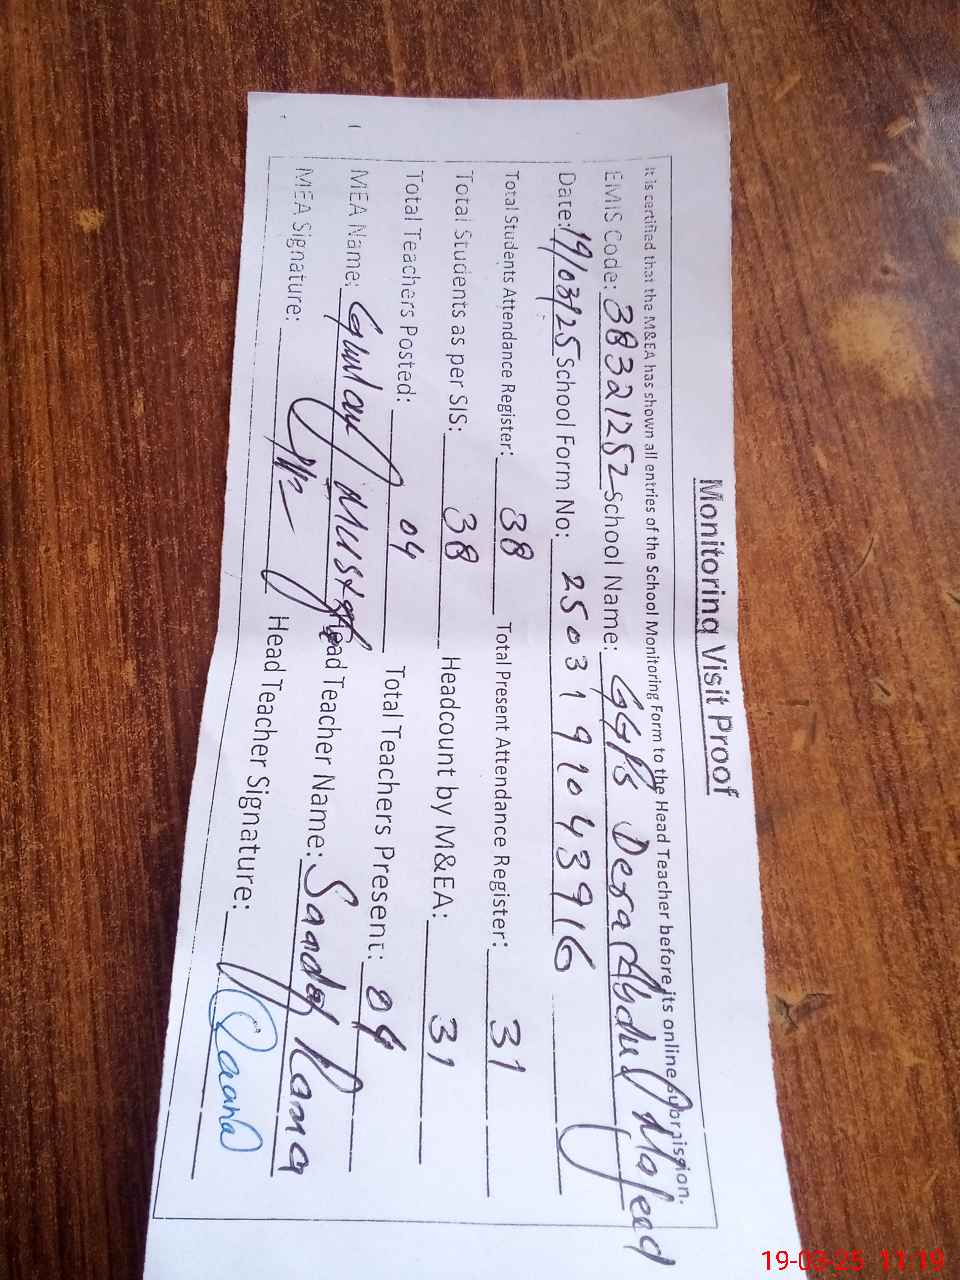 Monitoring Visit Proof
It is certified that the M&EA has shown all entries of the School Monitoring Form to the Head Teacher before its online Submission.
EMIS Code: 38321252 School Name: GGPS Dera Abdul Majeed
Date: 19/03/25 School Form No: 2503191043916
Total Students Attendance Register: 38 Total Present Attendance Register: 31
Total Students as per SIS: 38 Headcount by M&EA: 31
Total Teachers Posted: 04 Total Teachers Present: 04
MEA Name: Ghulam Mustafa Head Teacher Name: Rana
MEA Signature: Head Teacher Signature: Raana
19-03-25 11:19